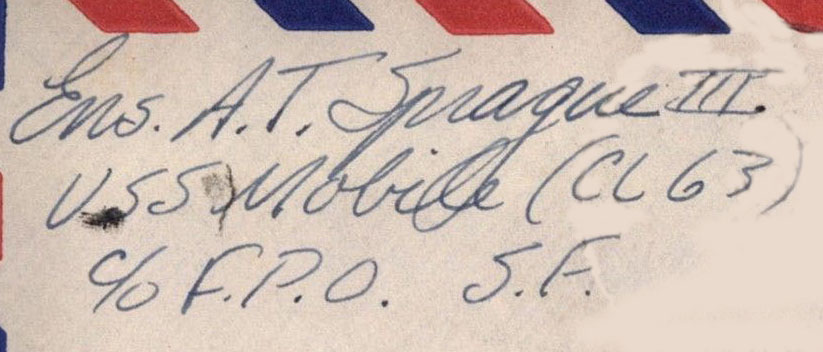 Ens. A.T. Sprague III.
USS Mobile (CL 63)
c/o F.P.O. S.F.